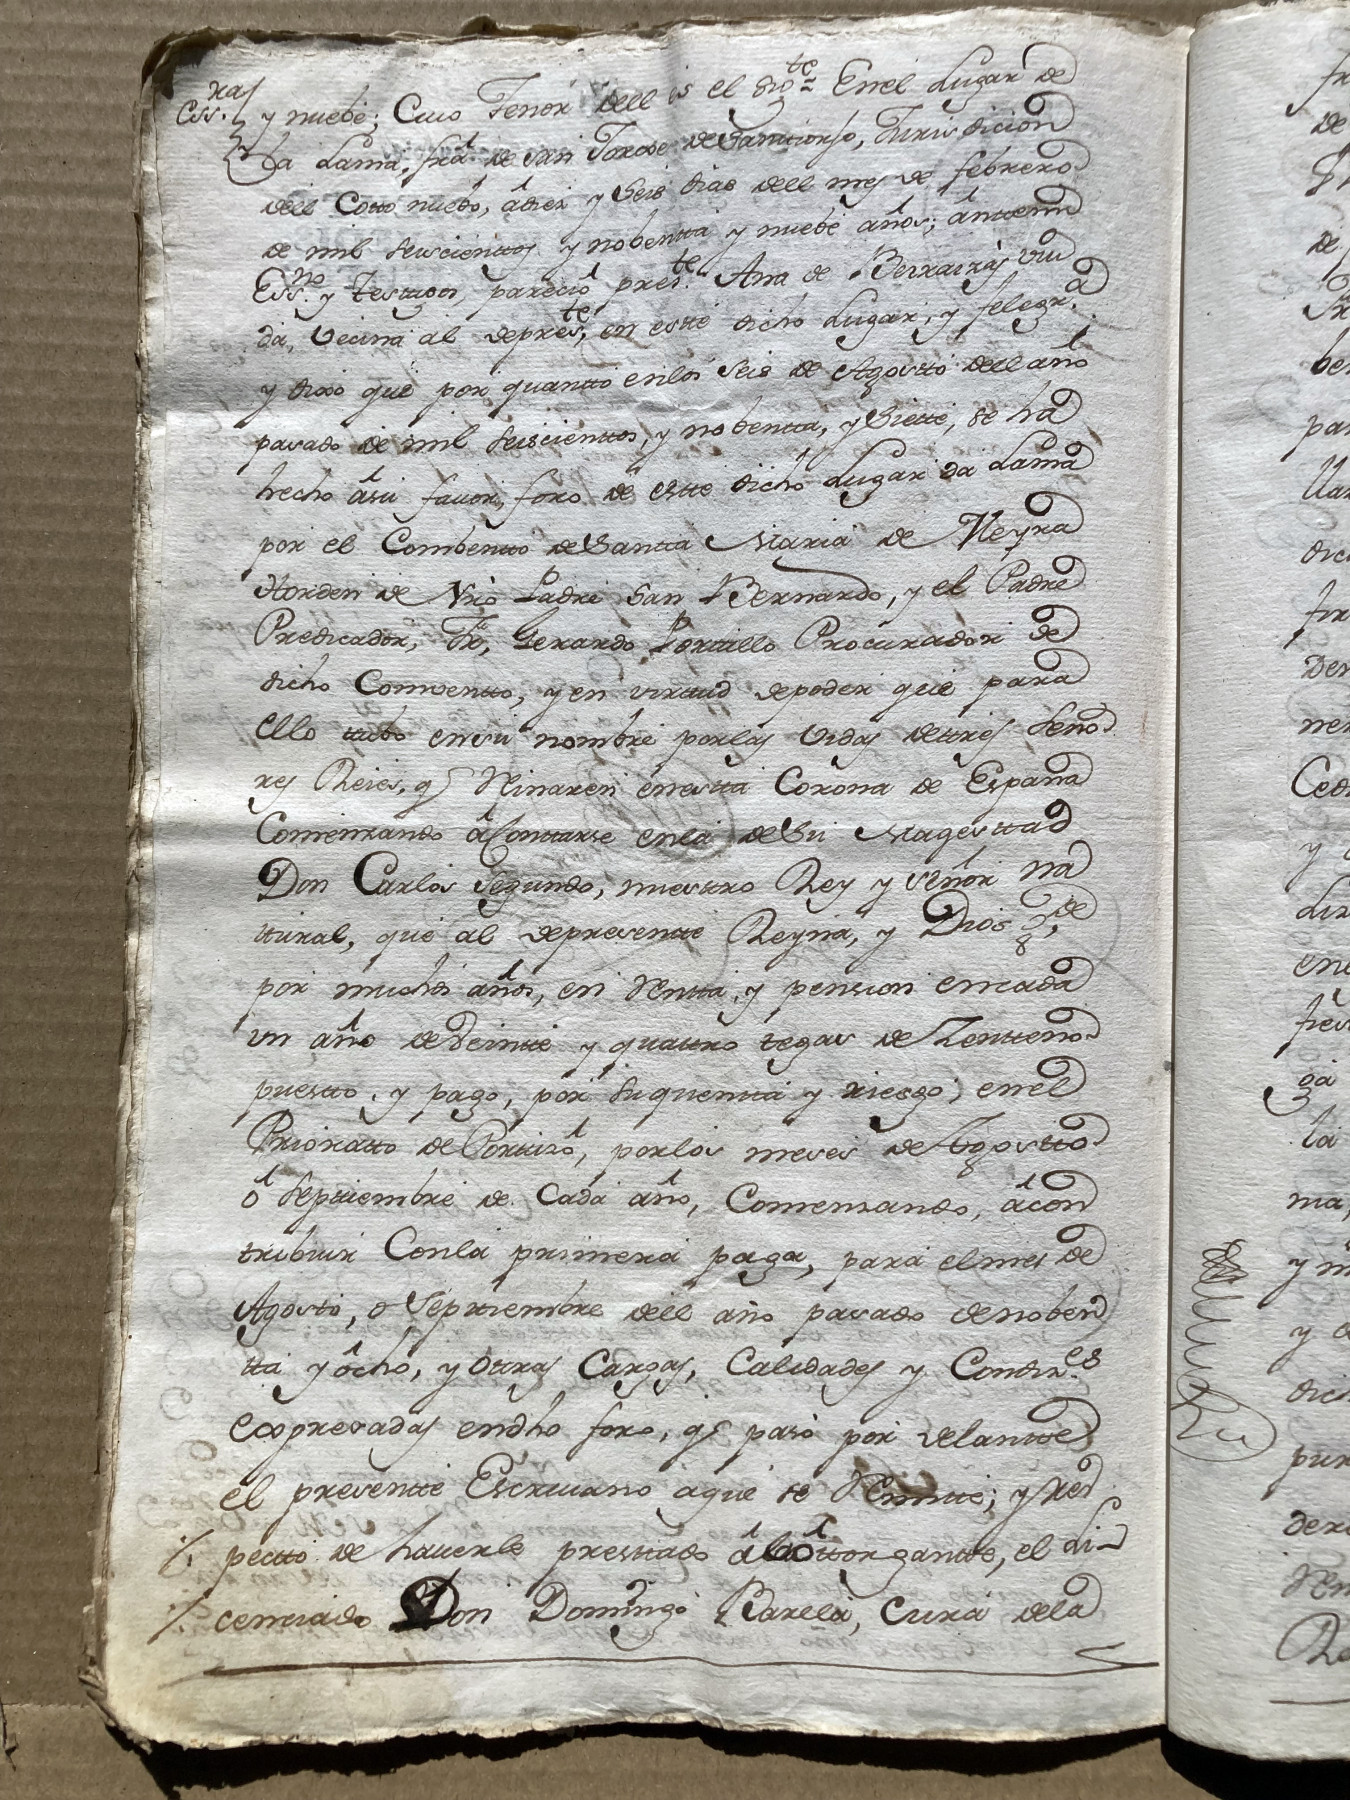 Ess.ras y nuebe; Cuio Tenor dell es el sigte= Enel Lugar de
da Lama, frâ de san Torcoe de Santiorjo, Jurisdicion
dell Cotto nuebo, âdiez y Seis dias dell mes de febrero
de mil seiscienttos y nobentta y nuebe años; ânttemi
Essno y testigos, parecio preste Ana de Beixairas viu
da, Vecina al depreste, en estte dicho Lugar, y felegra.
y dixo que por quantto enlos seis de Agostto dell año
pasado de mil seiscienttos, y nobentta, y Siette, se ha
hecho âsu favor, foro de estte dicho Lugar da Lama
por el Combentto de Santta Maria de Meyra
Horden de Nrô Padre San Bernardo, y el Padre
Predicador, Fr, Gerardo Portillo Procurador de
dicho Comventto, y en virttud depoder que para
ello tubo ensu nombre porlas vidas detres Seño
res Reies, q Rinaren enestta Corona de España
Comenzando âConttarse enla de Su Magesttad
Don Carlos Segundo, nuesttro Rey y señor na
ttural, que al depresentte Reyna, y Dios gde,
por muchos años, en Rentta, y pension encada
un año deVeintte y quattro tegas de Zentteno
puestto, y pago, por su quentta y riesgo; enel
Prioratto de Porttizô, porlos meses de Agostto
ô Septtiembre de Cada año, Comenzando, âcon
tribuir Conla primera paga, para elmes de
Agosto, o Septtiembre dell año pasado denoben
tta y ôcho, y otras Cargas, Calidades y Condizes
expresadas endho foro, q pasô por delantte
el presentte Escrivano aque se Remitte; y Res
·/. pectto de haverle presttado â la ôttorgantte, el Li
·/. cenciado Don Domingo Barela, Cura dela